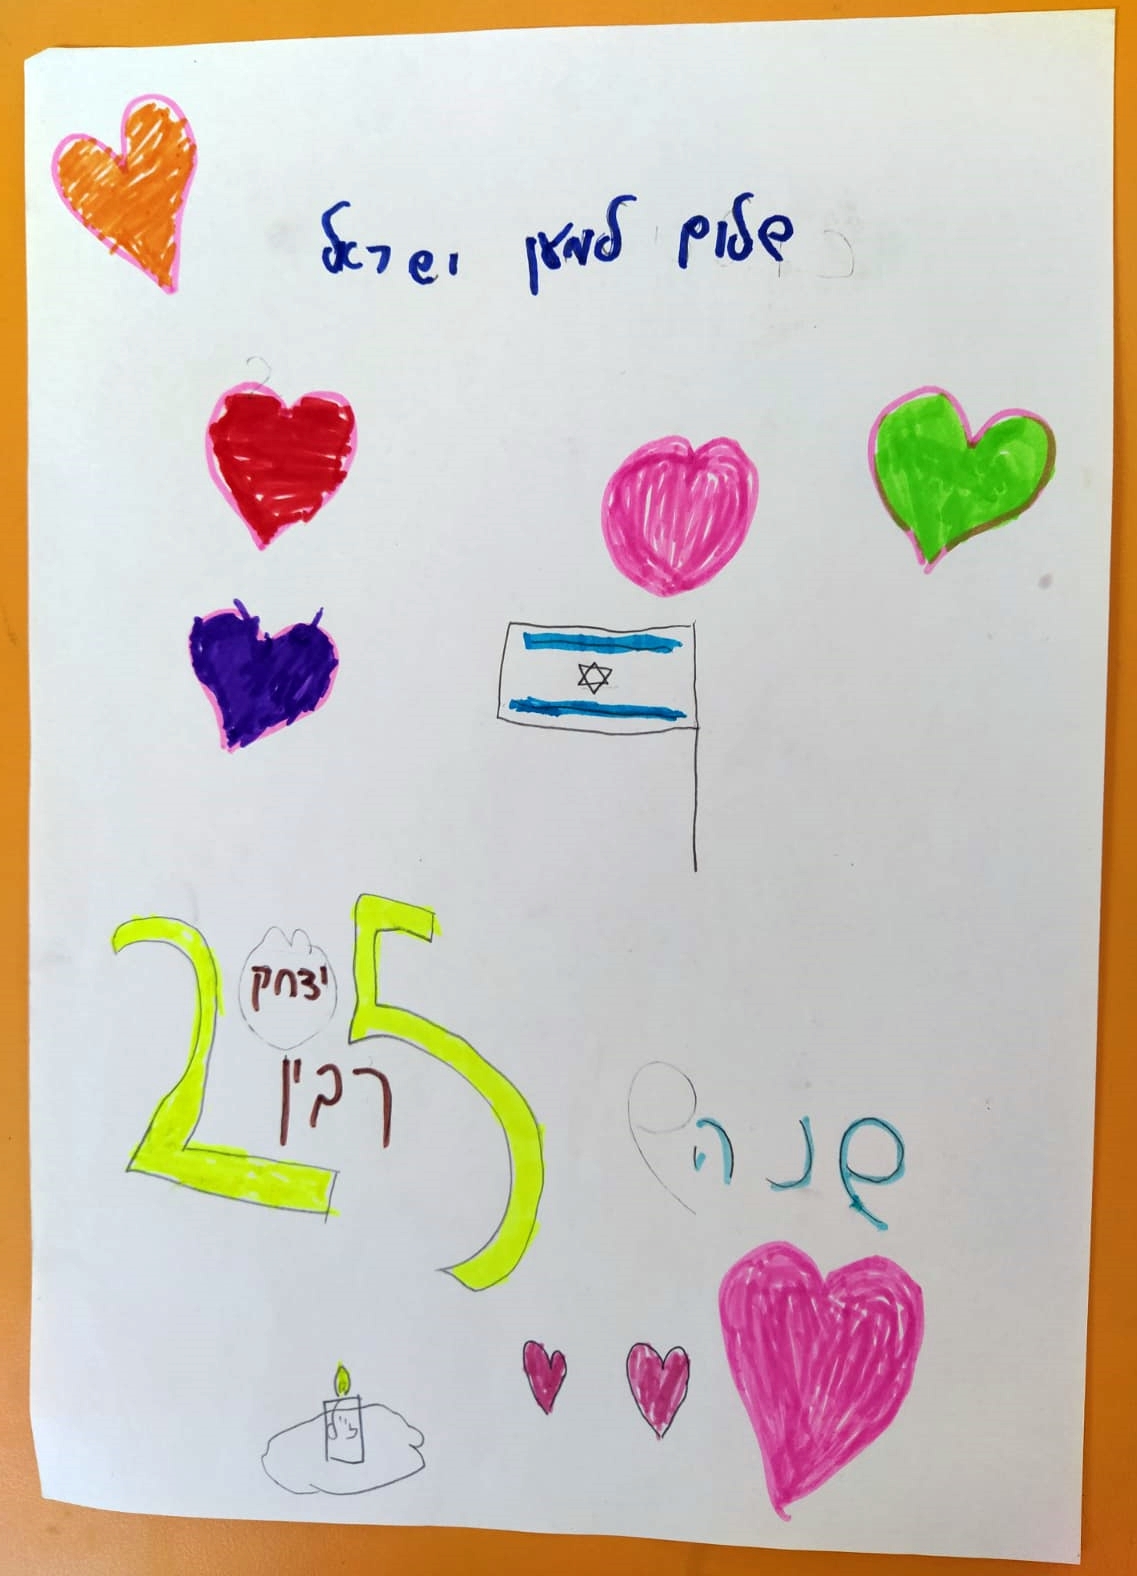 שלום למען ישראל
25
יצחק
רבין
שנה